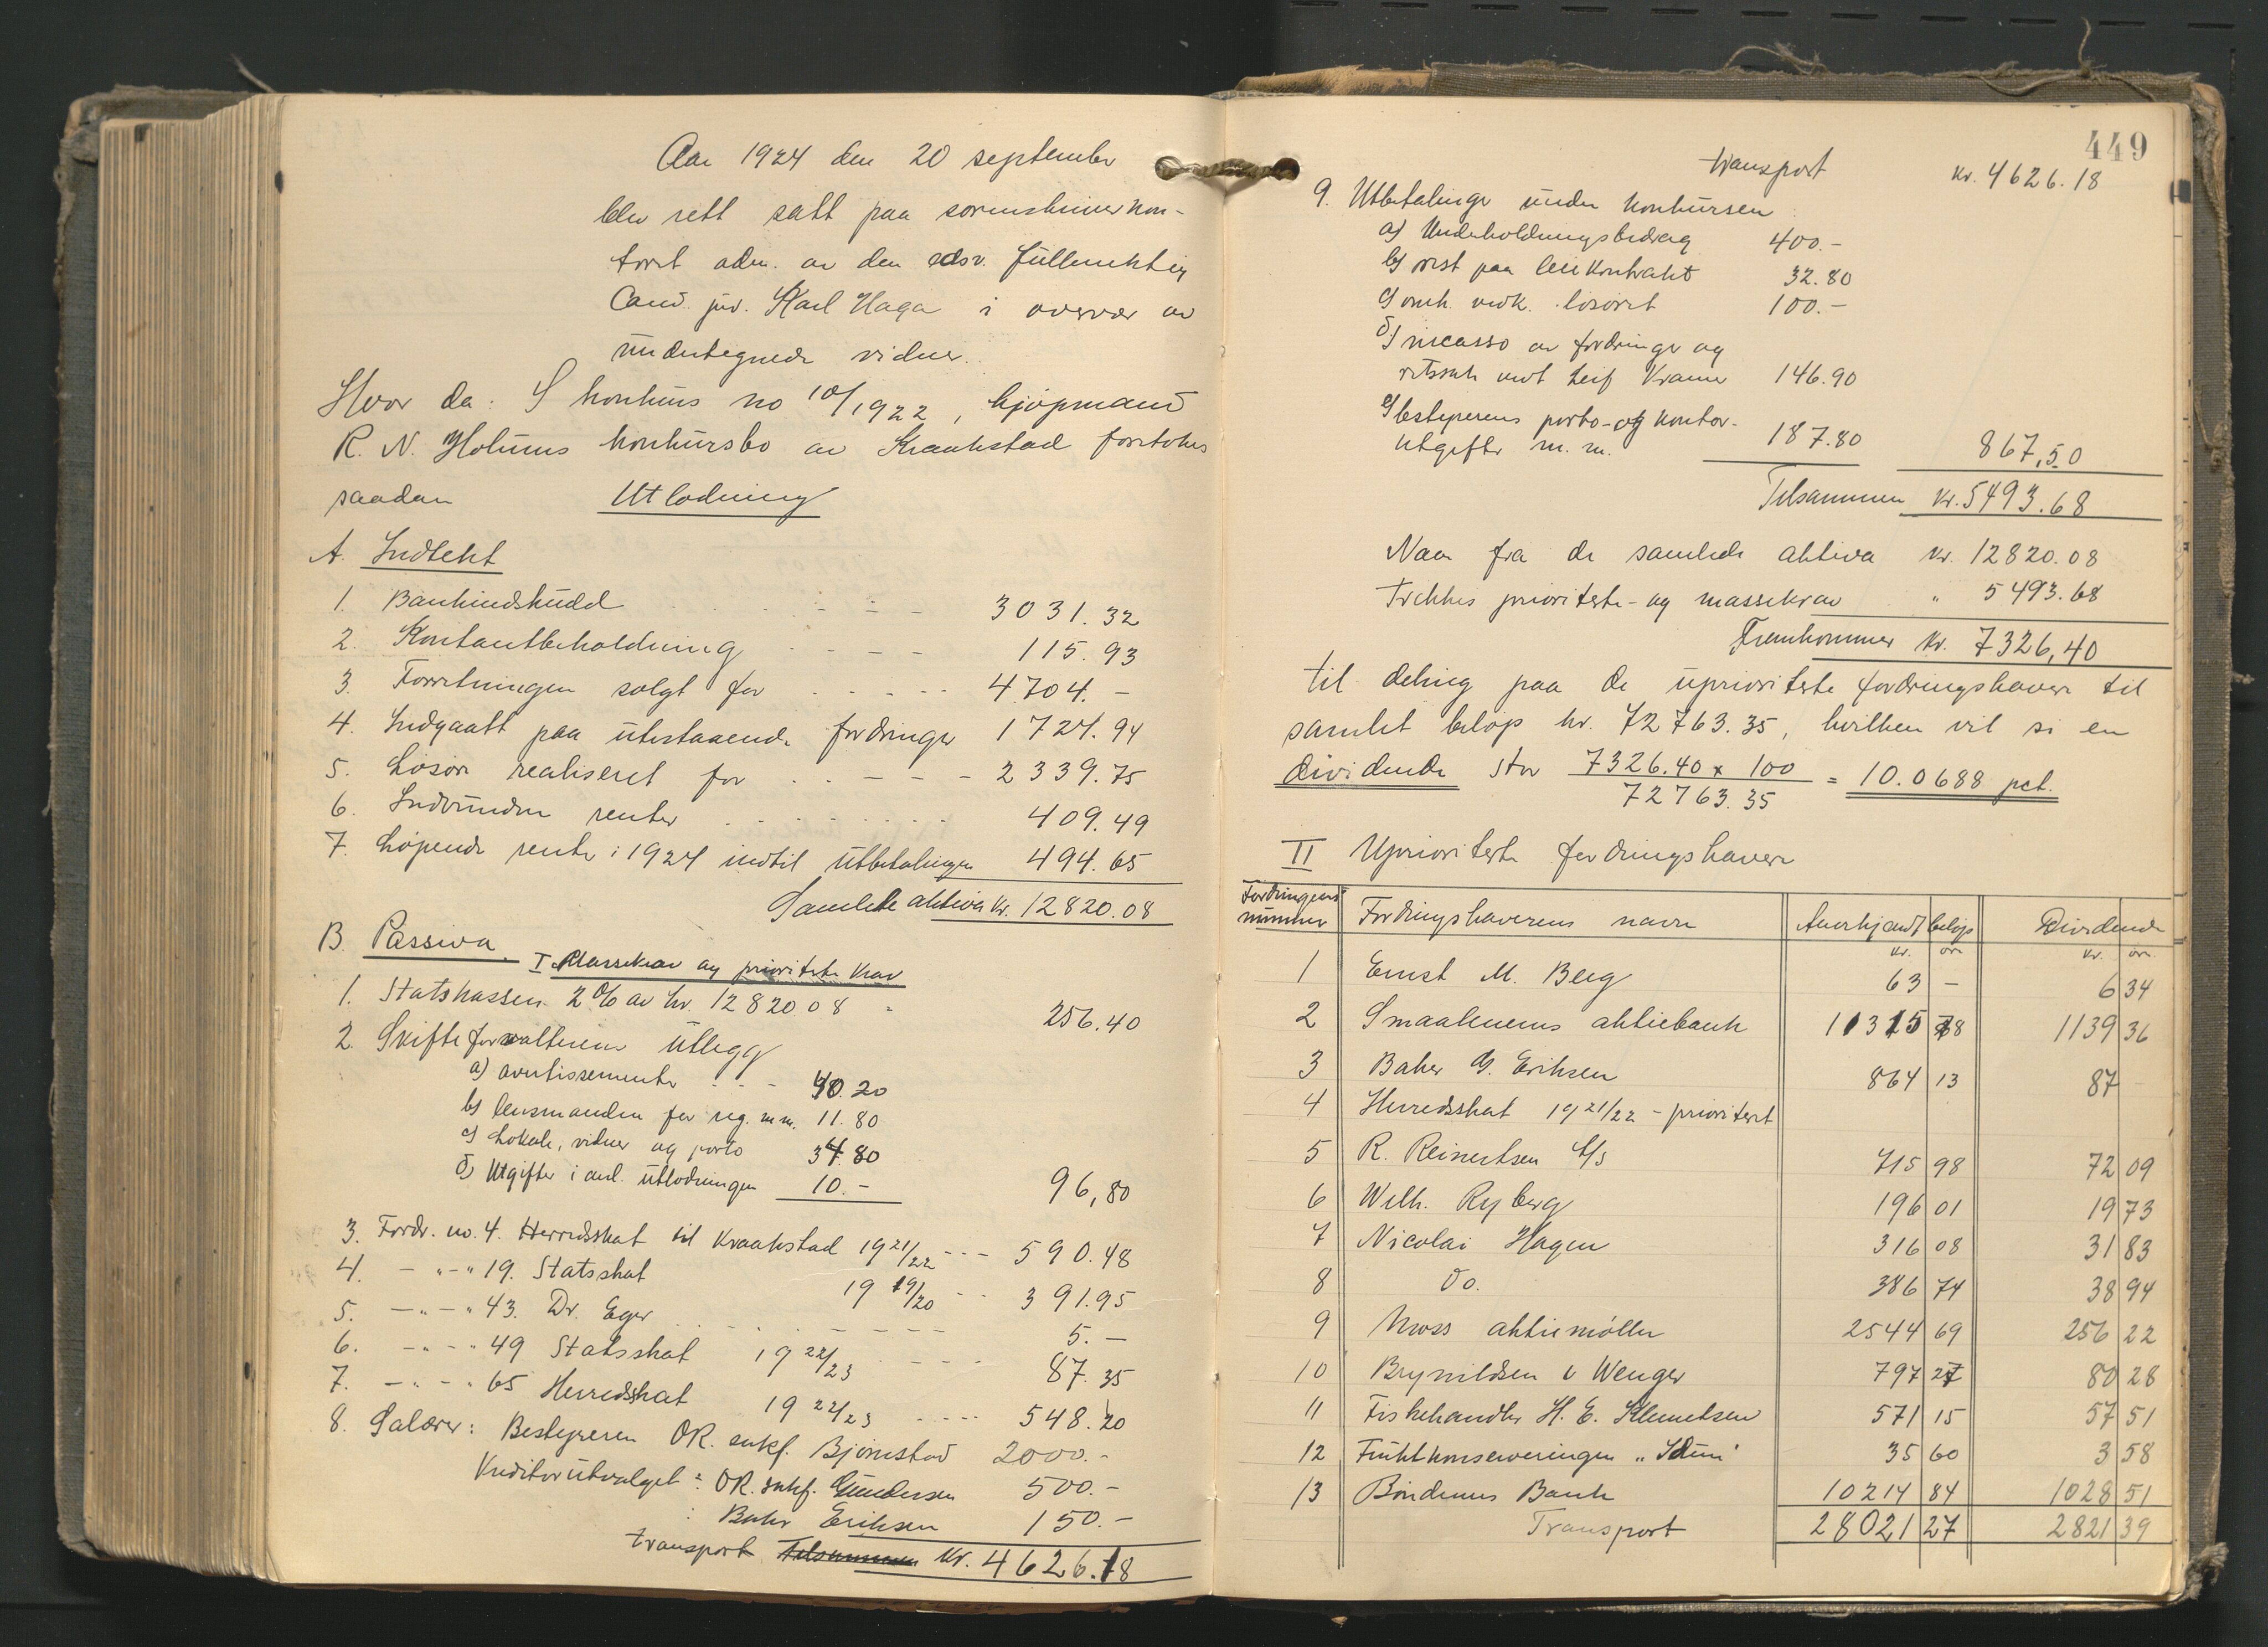 Aar 1924 den 20 september
blev rett satt paa sorenskriverkon-
toret adm. av den edsv. fullmektig
Cand. jur. Karl Haga i overvær av
undertegnede vidner.
Hvor da: I konkurs no 10/1922, kjøpmand
R. N. Holums konkursbo av Kraakstad foretokes
saadan Utlodning
A. Indtekt
1. Bankindskudd 3031.32
2. Kontantbeholdning 115.93
3. Forretningen solgt for 4704.-
4. Indgaatt paa utestaaende fordringer 1724.94
5. Løsøre realiseret for 2339.75
6. Indvundne renter 409.49
7. Løpende rente i 1924 indtil utbetalingen 494.65
Samlede aktiva kr. 12820.08
B. Passiva.
I. Massekrav og prioriterte krav
1. Statskassen 2 % av kr. 12820.08 256.40
2. Skifteforvalterens utlegg
a) avertissementer 40.20
b) lensmanden for reg. m.m. 11.80
c) Lokale, vidner og porto 34.80
d) Utgifter i anl. utlodningen 10.- 96,80
3. Fordr. no. 4. Herredsskat til Kraakstad 1921/22 590.48
4. - " - " 19. Statsskat 1919/20 391.95
5. - " - " 43. Dr. Eger 5.-
6. - " - " 49 Statsskat 1922/23 87.35
7. - " - " 65 Herredsskat 1922/23 548.20
8. Salærer: Bestyreren OR. sakf. Bjørnstad 2000.-
Kreditorutvalget: OR. sakf. Gundersen 500.-
: Baker Eriksen 150.-
transport Tilsammen kr. 4626.18
449
transport kr. 4626.18
9. Utbetalinger under konkursen
a) Underholdningsbidrag 400.-
b) rest paa leiekontrakt 32.80
c) omk. vedk. løsøret 100.-
d) incasso av fordringer og
retssak mot Leif Kramer 146.90
e) bestyrerens porto- og kontor-
utgifter m. m. 187.80 867,50
Tilsammen kr. 5493.68
Naar fra de samlede aktiva kr. 12820.08
trekkes prioriterte- og massekrav " 5493.68
Fremkommer kr. 7326,40
til deling paa de uprioriterte fordringshavere til
samlet beløp kr. 72763.35, hvilken vil si en
dividende stor 7326.40 x 100 = 10.0688 pct.
72763.35
II Uprioriterte fordringshavere
Fordringens nummer Fordringshaverens navn Anerkjendt beløp Dividende
kr. øre kr. øre
1 Ernst M. Berg 63 - 6 34
2 Smaalenenes aktiebank 11315 78 1139 36
3 Baker G. Eriksen 864 13 87 -
4 Herredsskat 1921/22 - prioritert
5 R. Reinertsen A/S 715 98 72 09
6 Wilh. Ryberg 196 01 19 73
7 Nicolai Hagen 316 08 31 83
8 do. 386 74 38 94
9 Moss aktiemøller 2544 69 256 22
10 Brynildsen & Wenger 797 27 80 28
11 Fiskehandler H. E. Klemetsen 571 15 57 51
12 Fruktkonserveringen "Idun" 35 60 3 58
13 Bøndernes Bank 10214 84 1028 51
Transport 28021 27 2821 39